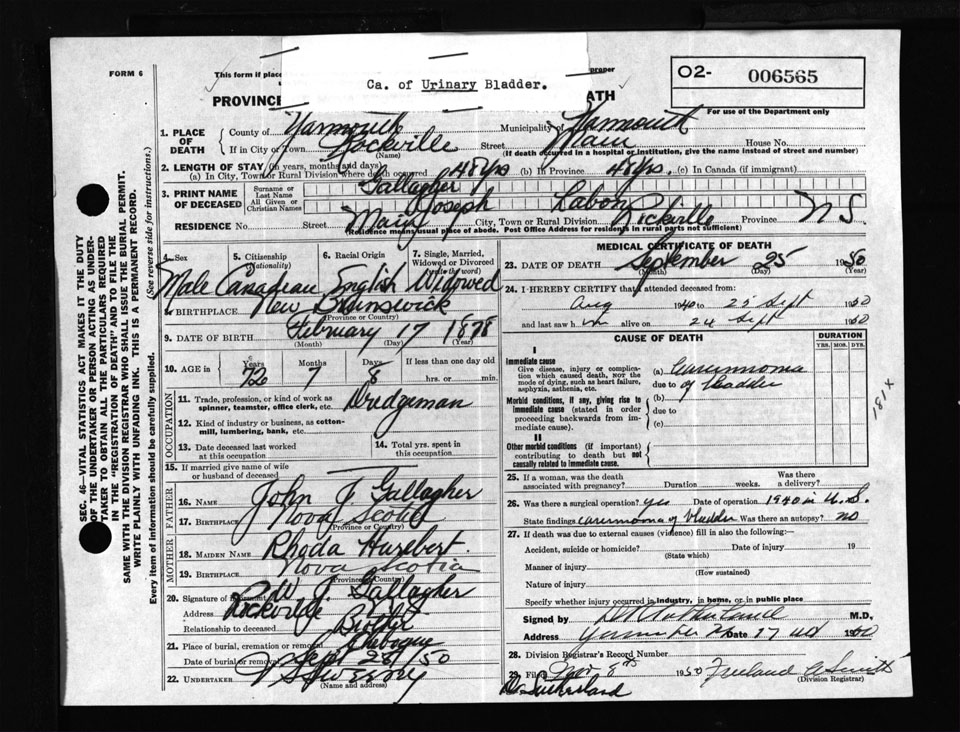 FORM 6
This form if place
proper
Ca. of Urinary Bladder.
O2- 006565
For use of the Department only
PROVINC
ATH
1. PLACE OF DEATH
County of Yarmouth Municipality of Yarmouth
If in City or Town Rockville Street Main House No.
(Name) (If death occurred in a hospital or institution, give the name instead of street and number)
2. LENGTH OF STAY (in years, months and days)
(a) In City, Town or Rural Division where death occurred 48 yrs (b) In Province 48 yrs. (c) In Canada (if immigrant)
3. PRINT NAME OF DECEASED
Surname or Last Name Gallagher
All Given or Christian Names Joseph Labon
RESIDENCE No. Street Main City, Town or Rural Division Rockville Province N S.
(Residence means usual place of abode. Post Office Address for residents in rural parts not sufficient)
4. Sex
5. Citizenship (Nationality)
6. Racial Origin
7. Single, Married, Widowed or Divorced (write the word)
Male Canadian English Widowed
8. BIRTHPLACE New Brunswick
(Province or Country)
9. DATE OF BIRTH February 17 1878
(Month) (Day) (Year)
10. AGE in Years Months Days If less than one day old
72 7 8 hrs. or min.
OCCUPATION
11. Trade, profession, or kind of work as spinner, teamster, office clerk, etc. Dredgeman
12. Kind of industry or business, as cotton-mill, lumbering, bank, etc.
13. Date deceased last worked at this occupation
14. Total yrs. spent in this occupation
15. If married give name of wife or husband of deceased
FATHER
16. Name John F Gallagher
17. Birthplace Nova Scotia
(Province or Country)
MOTHER
18. MAIDEN NAME Rhoda Hurlbert
19. Birthplace Nova Scotia
(Province or Country)
20. Signature of informant W J. Gallagher
Address Rockville
Relationship to deceased Brother
21. Place of burial, cremation or removal Chebogue
Date of burial or removal Sept 28/50
22. UNDERTAKER V S Sweeny
(Name and address)
MEDICAL CERTIFICATE OF DEATH
23. DATE OF DEATH September 25 1950
(Month) (Day) (Year)
24. I HEREBY CERTIFY that I attended deceased from:
Aug 1940 to 25 Sept 1950
and last saw him alive on 24 Sept 1950
CAUSE OF DEATH
DURATION
YRS. MOS. DYS.
I
Immediate cause
Give disease, injury or complication which caused death, NOT the mode of dying, such as heart failure, asphyxia, asthenia, etc.
(a) Carcinoma
due to of bladder
Morbid conditions, if any, giving rise to immediate cause (stated in order proceeding backwards from immediate cause).
(b)
due to
(c)
II
Other morbid conditions (if important) contributing to death but not causally related to immediate cause.
181X
25. If a woman, was the death associated with pregnancy? Duration weeks. Was there a delivery?
26. Was there a surgical operation? yes Date of operation 1940 in U.S.
State findings carcinoma of bladder Was there an autopsy? no
27. If death was due to external causes (violence) fill in also the following:
Accident, suicide or homicide? Date of injury 19
(State which)
Manner of injury
(How sustained)
Nature of injury
Specify whether injury occurred in industry, in home, or in public place
Signed by M.D.
Address Yarmouth NS Date 17 1950
28. Division Registrar's Record Number
29. Filed Nov 8th 1950 Freeland A Smith
(Division Registrar)
Dr. Sutherland
SEC. 46—VITAL STATISTICS ACT MAKES IT THE DUTY
OF THE UNDERTAKER OR PERSON ACTING AS UNDER-
TAKER TO OBTAIN ALL THE PARTICULARS REQUIRED
IN THE "REGISTRATION OF DEATH" AND TO FILE THE
SAME WITH THE DIVISION REGISTRAR WHO SHALL ISSUE THE BURIAL PERMIT.
WRITE PLAINLY WITH UNFADING INK. THIS IS A PERMANENT RECORD.
Every item of information should be carefully supplied. (See reverse side for instructions.)